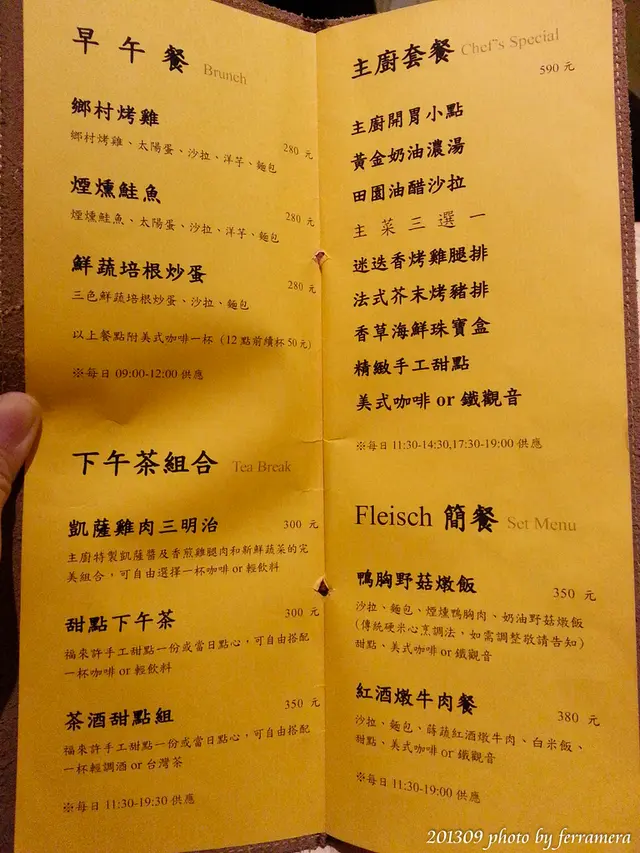 早午餐 Brunch
鄉村烤雞
鄉村烤雞、太陽蛋、沙拉、洋芋、麵包
280 元
煙燻鮭魚
煙燻鮭魚、太陽蛋、沙拉、洋芋、麵包
280 元
鮮蔬培根炒蛋
三色鮮蔬培根炒蛋、沙拉、麵包
280 元
以上餐點附美式咖啡一杯 (12點前續杯50元)
※每日 09:00-12:00 供應
下午茶組合 Tea Break
凱薩雞肉三明治 300 元
主廚特製凱薩醬及香煎雞腿肉和新鮮蔬菜的完
美組合,可自由選擇一杯咖啡 or 輕飲料
甜點下午茶 300 元
福來許手工甜點一份或當日點心,可自由搭配
一杯咖啡 or 輕飲料
茶酒甜點組 350 元
福來許手工甜點一份或當日點心,可自由搭配
一杯輕調酒 or 台灣茶
※每日 11:30-19:30 供應
主廚套餐 Chef's Special
590 元
主廚開胃小點
黃金奶油濃湯
田園油醋沙拉
主菜三選一
迷迭香烤雞腿排
法式芥末烤豬排
香草海鮮珠寶盒
精緻手工甜點
美式咖啡 or 鐵觀音
※每日 11:30-14:30,17:30-19:00 供應
Fleisch 簡餐 Set Menu
鴨胸野菇燉飯 350 元
沙拉、麵包、煙燻鴨胸肉、奶油野菇燉飯
(傳統硬米心烹調法,如需調整敬請告知)
甜點、美式咖啡 or 鐵觀音
紅酒燉牛肉餐 380 元
沙拉、麵包、蒔蔬紅酒燉牛肉、白米飯、
甜點、美式咖啡 or 鐵觀音
※每日 11:30-19:00 供應
201309 photo by ferramera